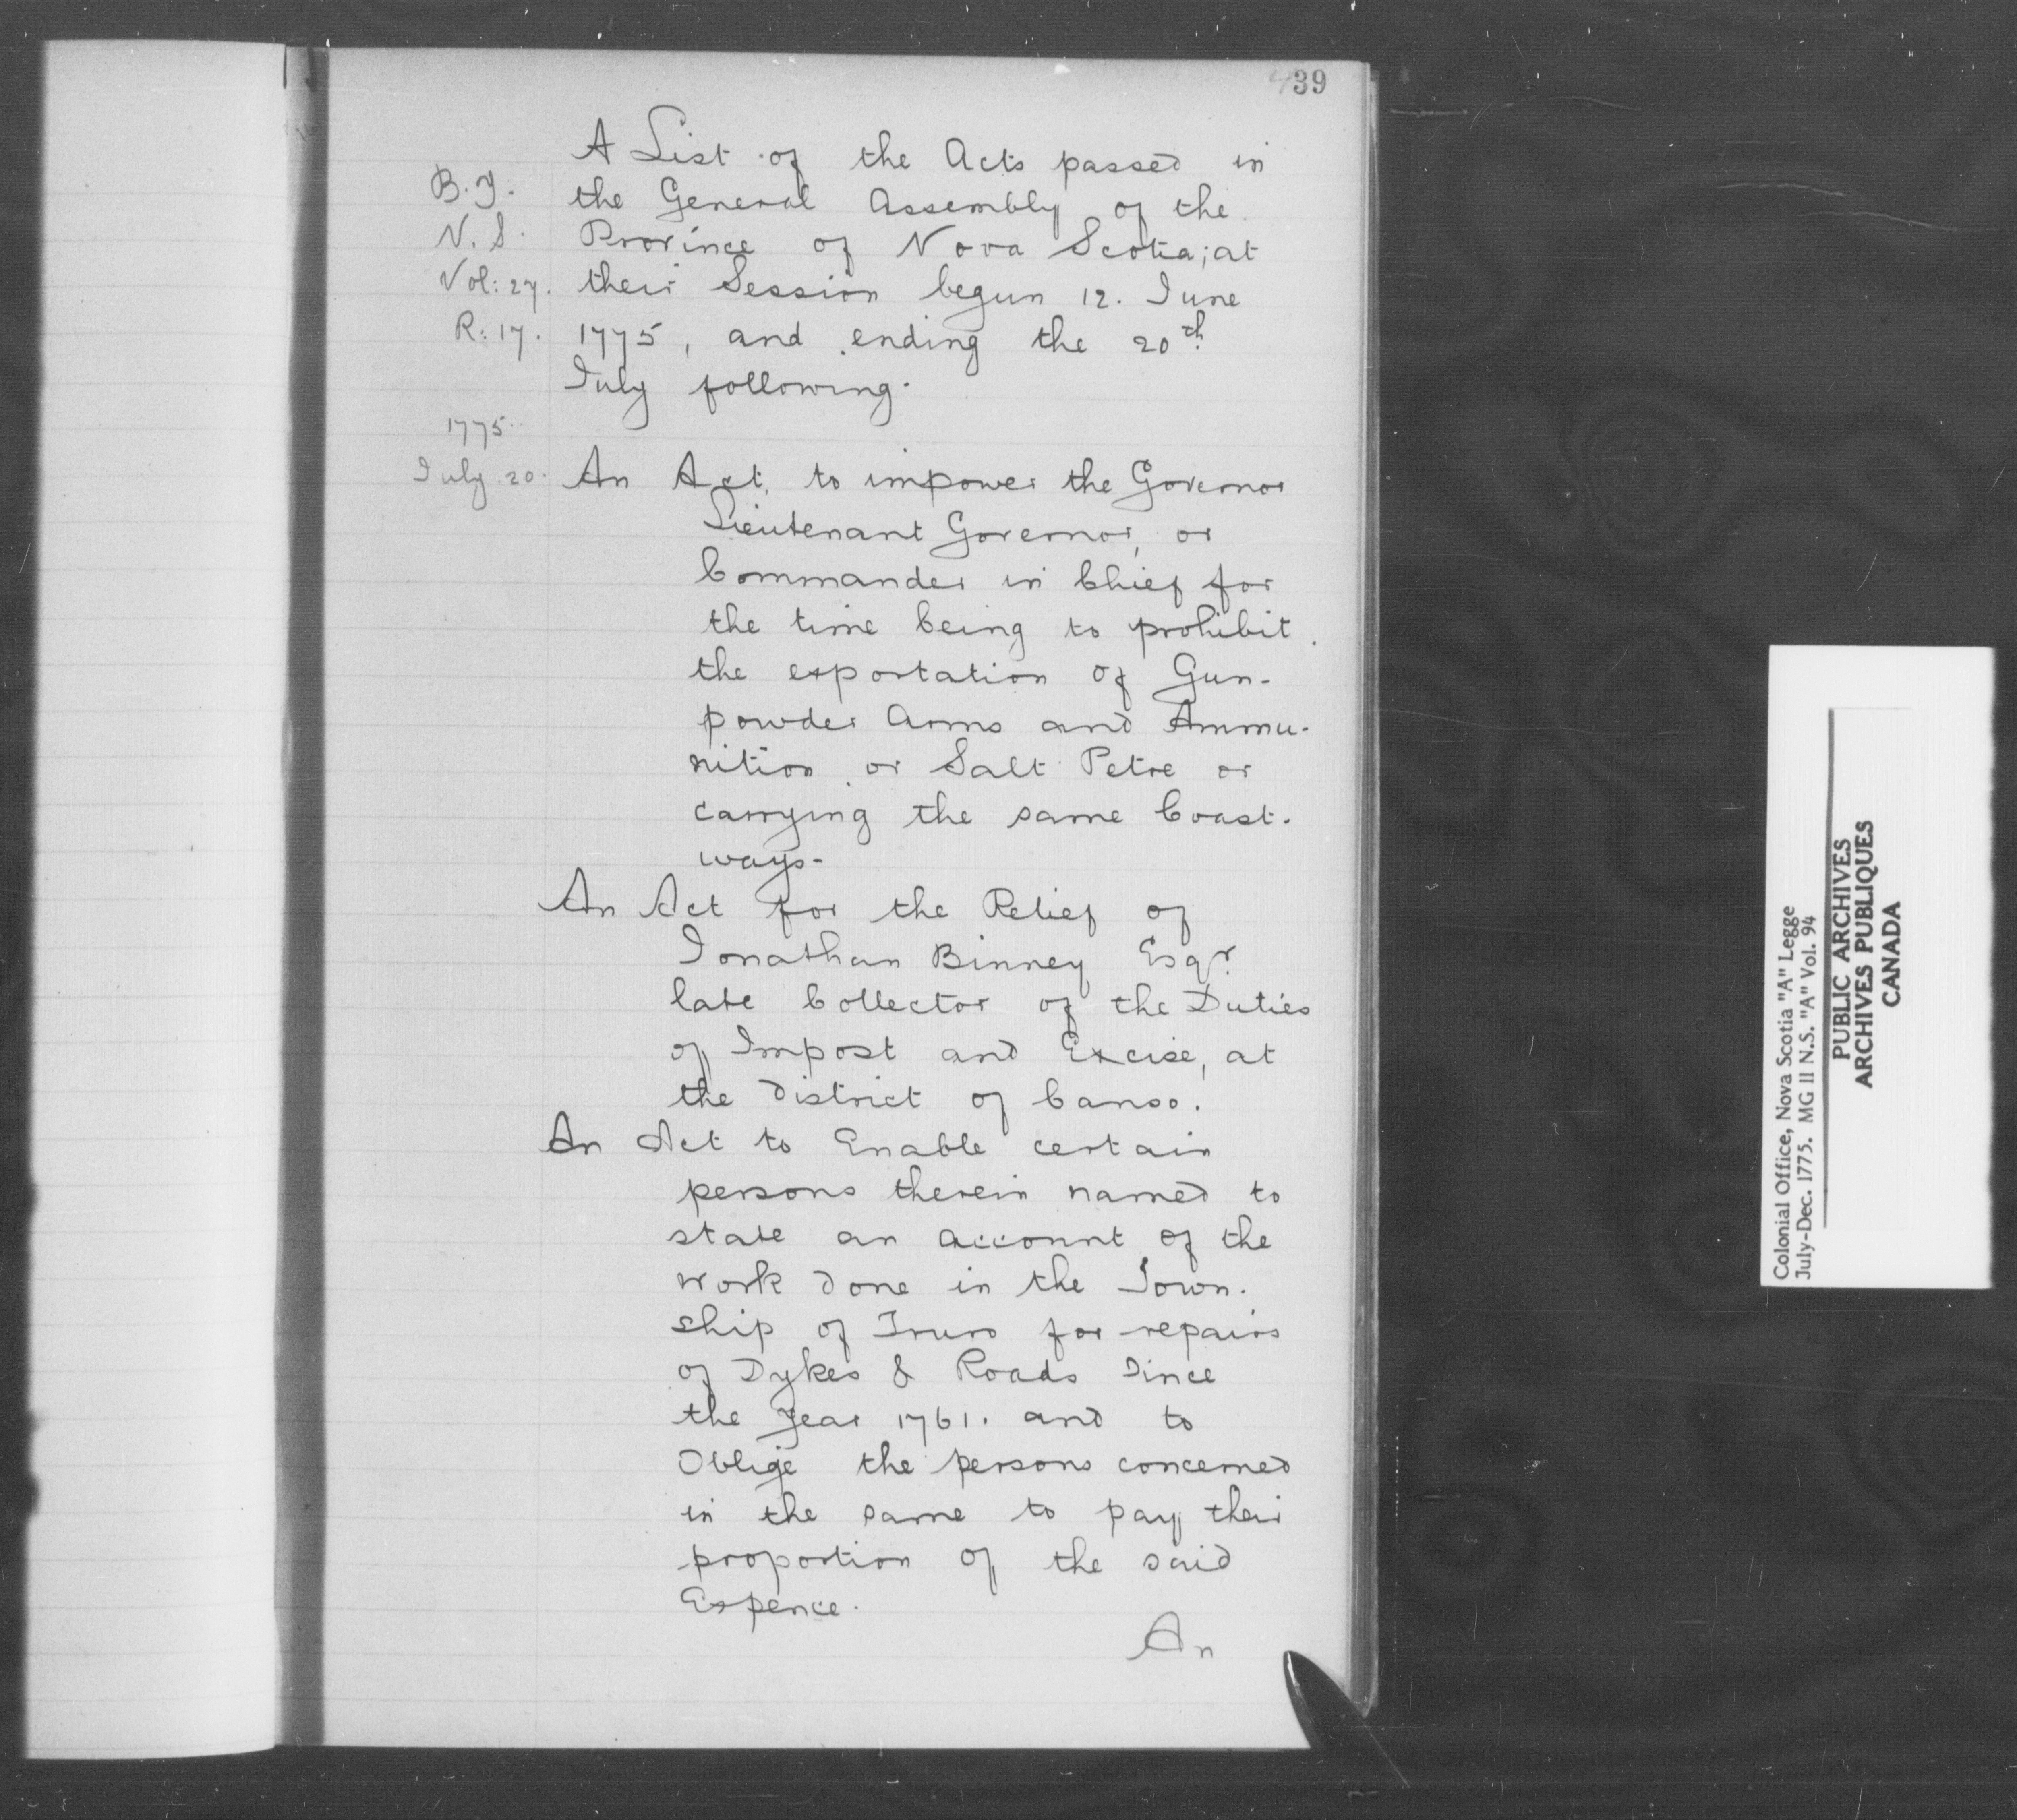 39
A List of the Acts passed in
the General Assembly of the
Province of Nova Scotia; at
their Session begun 12. June
1775, and ending the 20th
July following.
B.T.
N.S.
Vol: 27.
R: 17.
1775.
July 20.
An Act, to impower the Governor
Lieutenant Governor, or
Commander in Chief for
the time being to prohibit
the exportation of Gun-
powder Arms and Ammu-
nition or Salt Petre or
carrying the same Coast-
ways-
An Act for the Relief of
Jonathan Binney Esqr.
late Collector of the Duties
of Impost and Excise, at
the District of Canso.
An Act to Enable certain
persons therein named to
state an account of the
work done in the Town-
ship of Truro for repairs
of Dykes & Roads Since
the year 1761. and to
Oblige the persons concerned
in the same to pay their
proportion of the said
Expence.
An
Colonial Office, Nova Scotia "A" Legge
July-Dec. 1775. MG II N.S. "A" Vol. 94
PUBLIC ARCHIVES
ARCHIVES PUBLIQUES
CANADA